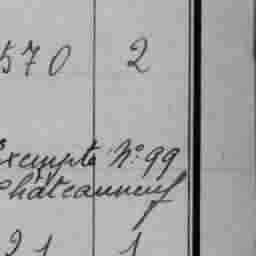 570 2
Exempte N:99
Châteauneuf
21 1